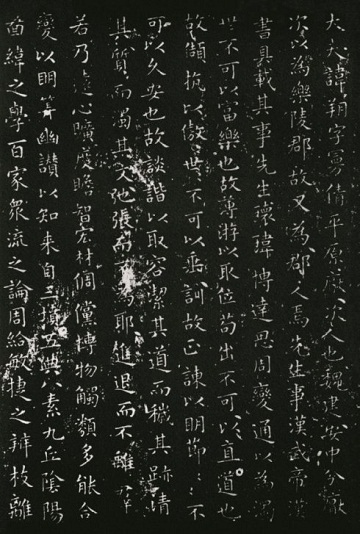 大夫諱朔字曼倩平原厭次人也魏建安中分厭
次以為樂陵郡故又為郡人焉先生事漢武帝漢
書具載其事先生瓌瑋博達思周變通以為濁
世不可以富樂也故薄游以取位苟出不可以直道也
故頡抗以傲世〻不可以垂訓故正諫以明節〻不
可以久安也故談諧以取容潔其道而穢其跡清
其質而濁其文弛張為耶進退而不離羣
若乃遠心曠度贍智宏材倜儻博物觸類多能合
變以明筭幽讚以知来自三墳五典八素九丘陰陽
圖緯之學百家衆流之論周給敏捷之辯枝離